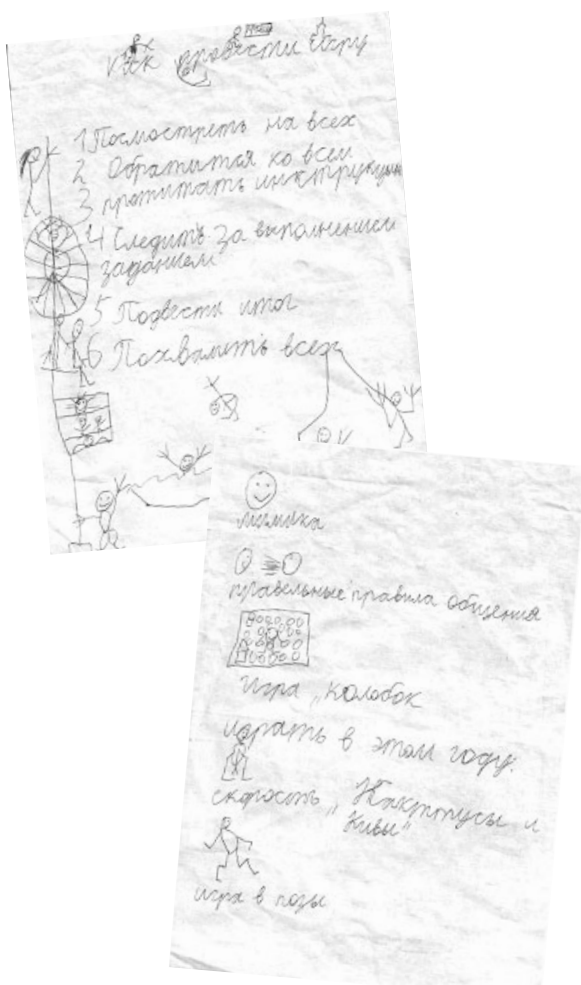 Как провести игру
1 Посмостреть на всех
2 Обратится ко всем
3 протитать инкструкцию
4 Следить за выполнением
заданием
5 Подвести итог
6 Похвалить всех
мимика
правельные правила общения
Игра „колобок
играть в этом году.
скорость „Кактусы и
Кивы"
игра в позы